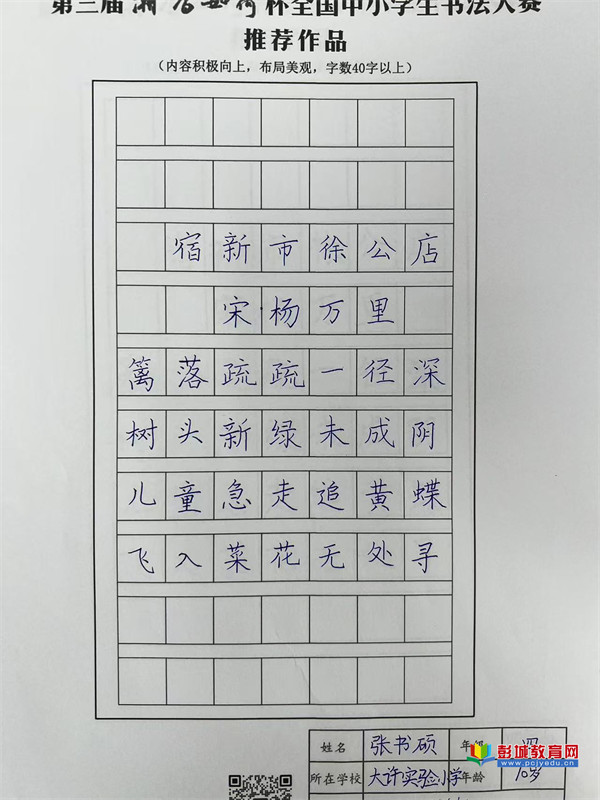 第三届 杯全国中小学生书法大赛
推荐作品
（内容积极向上，布局美观，字数40字以上）
宿新市徐公店
宋杨万里
篱落疏疏一径深
树头新绿未成阴
儿童急走追黄蝶
飞入菜花无处寻
姓名 张书硕 年级 四
所在学校 大许实验小学 年龄 10岁
彭城教育网
www.pcjyedu.cn